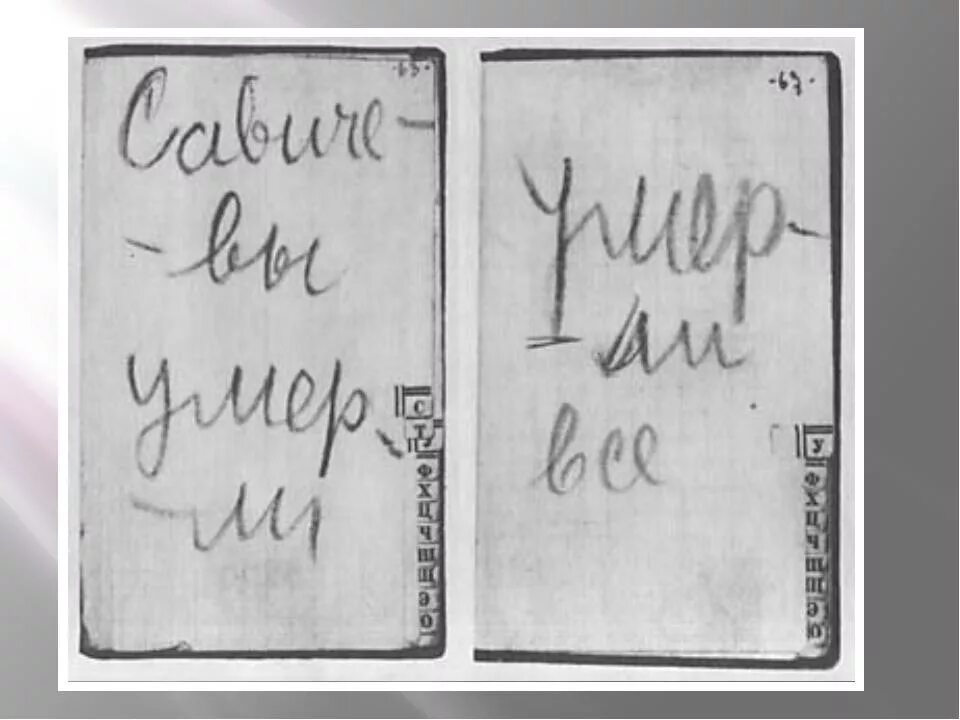 ·63·
Савиче-
-вы
умер
-ли
С
Т
У
Ф
Х
Ц
Ч
Ш
Щ
Э
Ю
·67·
Умер-
-ли
все
У
Ф
Х
Ц
Ч
Ш
Щ
Э